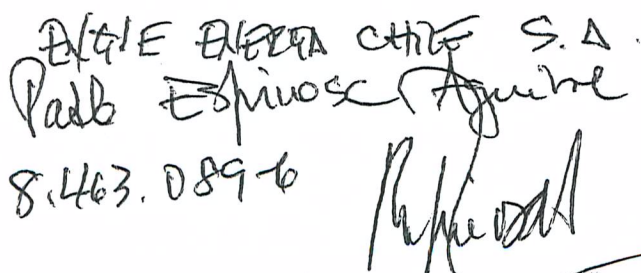 ENGIE ENERGIA CHILE S.A.
Pablo Espinosa Aguirre
8.463.089-6